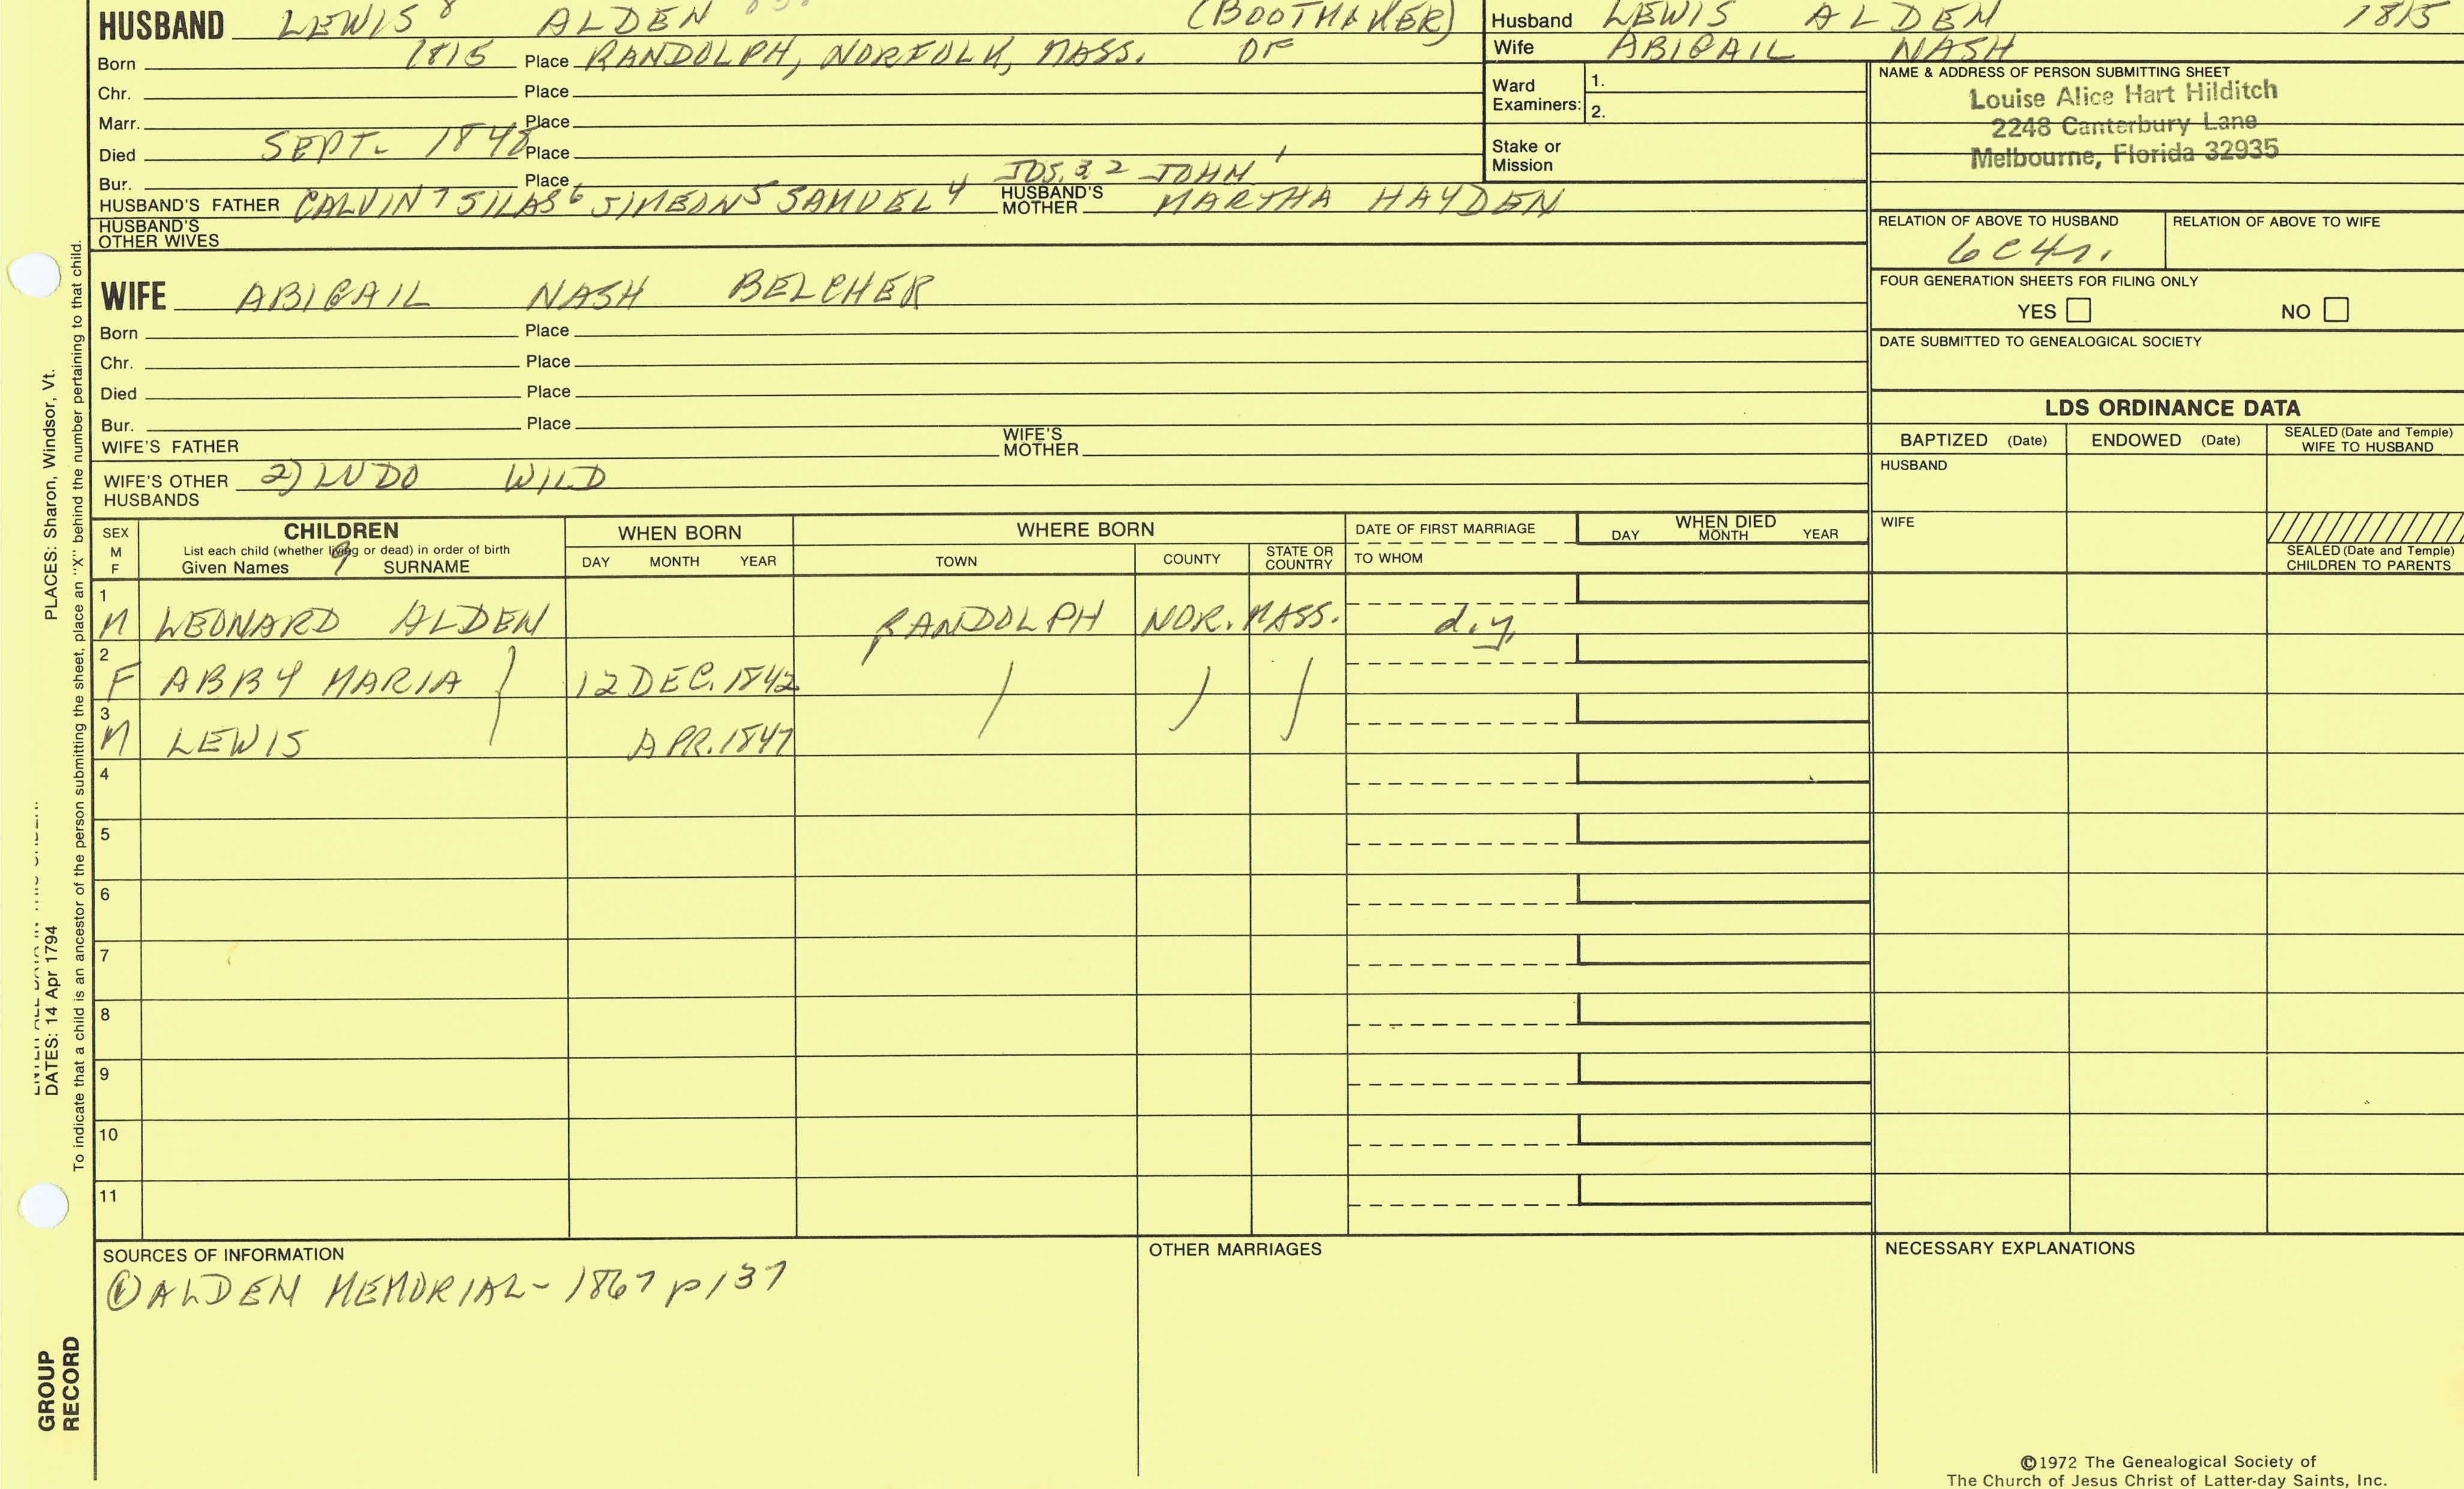 HUSBAND LEWIS 8 ALDEN (BOOTMAKER)
Born 1815 Place RANDOLPH, NORFOLK, MASS. OF
Chr. Place
Marr. Place
Died SEPT. 1848 Place
Bur. Place
JOS. 3. 2 JOHN 1
HUSBAND'S FATHER CALVIN 7 SILAS 6 SIMEON 5 SAMUEL 4 HUSBAND'S MOTHER MARTHA HAYDEN
HUSBAND'S OTHER WIVES
Husband LEWIS ALDEN 1815
Wife ABIGAIL NASH
Ward Examiners: 1.
2.
Stake or Mission
NAME & ADDRESS OF PERSON SUBMITTING SHEET
Louise Alice Hart Hilditch
2248 Canterbury Lane
Melbourne, Florida 32935
RELATION OF ABOVE TO HUSBAND RELATION OF ABOVE TO WIFE
6C4r.
FOUR GENERATION SHEETS FOR FILING ONLY
YES NO
DATE SUBMITTED TO GENEALOGICAL SOCIETY
WIFE ABIGAIL NASH BELCHER
Born Place
Chr. Place
Died Place
Bur. Place
WIFE'S FATHER WIFE'S MOTHER
WIFE'S OTHER HUSBANDS 2) LUDO WILD
LDS ORDINANCE DATA
BAPTIZED (Date) ENDOWED (Date) SEALED (Date and Temple) WIFE TO HUSBAND
HUSBAND
WIFE
SEALED (Date and Temple) CHILDREN TO PARENTS
SEX M F CHILDREN WHEN BORN WHERE BORN DATE OF FIRST MARRIAGE WHEN DIED
List each child (whether living or dead) in order of birth
Given Names 9 SURNAME DAY MONTH YEAR TOWN COUNTY STATE OR COUNTRY TO WHOM DAY MONTH YEAR
1 M LEONARD ALDEN RANDOLPH NOR. MASS. d.y.
2 F ABBY MARIA 12 DEC. 1842
3 M LEWIS APR. 1847
4
5
6
7
8
9
10
11
SOURCES OF INFORMATION
① ALDEN MEMORIAL - 1867 p137
OTHER MARRIAGES
NECESSARY EXPLANATIONS
©1972 The Genealogical Society of
The Church of Jesus Christ of Latter-day Saints, Inc.
PLACES: Sharon, Windsor, Vt.
DATES: 14 Apr 1794
To indicate that a child is an ancestor of the person submitting the sheet, place an "X" behind the number pertaining to that child.
GROUP
RECORD